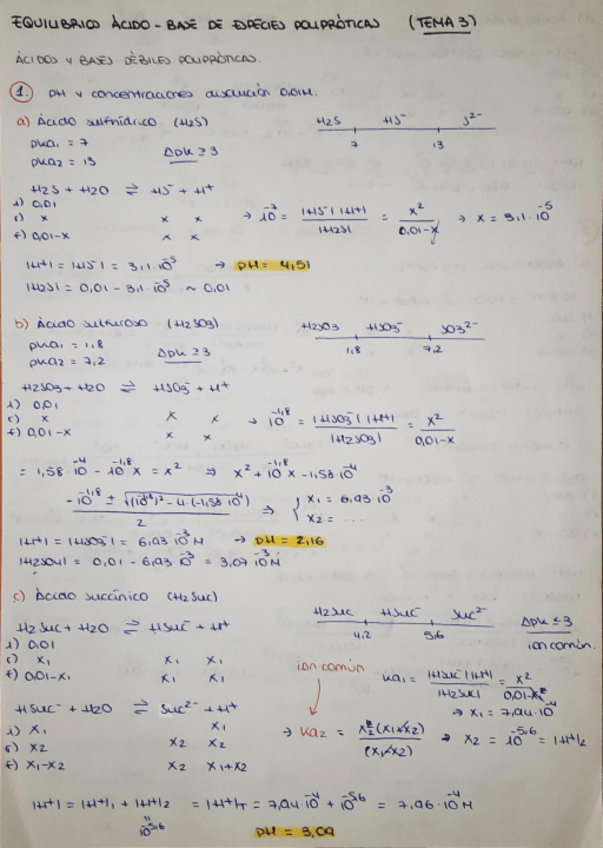 EQUILIBRIO ÁCIDO-BASE DE ESPECIES POLIPRÓTICAS (TEMA 3)
ÁCIDOS Y BASES DÉBILES POLIPRÓTICAS.
1. pH y concentraciones disolución 0,01M.
a) Ácido sulfhídrico (H2S)
H2S HS⁻ S²⁻
7 13
pka1 = 7
pka2 = 13 Δpk ≥ 3
H2S + H2O ⇌ HS⁻ + H⁺
i) 0,01
r) x x x → 10⁻⁷ = |HS⁻| |H⁺| / |H2S| = x² / 0,01-x → x = 3,1·10⁻⁵
f) 0,01-x x x
|H⁺| = |HS⁻| = 3,1·10⁻⁵ → pH = 4,51
|H2S| = 0,01 - 3,1·10⁻⁵ ~ 0,01
b) Ácido sulfuroso (H2SO3)
H2SO3 HSO3⁻ SO3²⁻
1,8 7,2
pka1 = 1,8
pka2 = 7,2 Δpk ≥ 3
H2SO3 + H2O ⇌ HSO3⁻ + H⁺
i) 0,01
r) x x x → 10⁻¹,⁸ = |HSO3⁻| |H⁺| / |H2SO3| = x² / 0,01-x
f) 0,01-x x x
= 1,58·10⁻⁴ - 10⁻¹,⁸ x = x² ⇒ x² + 10⁻¹,⁸ x - 1,58·10⁻⁴
-10⁻¹,⁸ ± √(10⁻¹,⁸)² - 4·(-1,58·10⁻⁴) / 2 ⇒ { x1 = 6,93·10⁻³
x2 = ...
|H⁺| = |HSO3⁻| = 6,93·10⁻³ M → pH = 2,16
|H2SO4| = 0,01 - 6,93·10⁻³ = 3,07·10⁻³ M
c) Ácido succínico (H2Suc)
H2Suc HSuc⁻ Suc²⁻
4,2 5,6
Δpk ≤ 3
ion común.
H2Suc + H2O ⇌ HSuc⁻ + H⁺
i) 0,01
r) x1 x1 x1
f) 0,01-x1 x1 x1
ion común
ka1 = |HSuc⁻| |H⁺| / |H2Suc| = x² / 0,01-x
⇒ x1 = 7,94·10⁻⁴
HSuc⁻ + H2O ⇌ Suc²⁻ + H⁺
i) x1 x1
r) x2 x2 x2
f) x1-x2 x2 x1+x2
→ ka2 = x2(x1+x2) / (x1-x2) ⇒ x2 = 10⁻⁵,⁶ = |H⁺|2
|H⁺| = |H⁺|1 + |H⁺|2 = |H⁺|T = 7,94·10⁻⁴ + 10⁻⁵,⁶ = 7,96·10⁻⁴ M
10⁻⁵,⁶
pH = 3,09